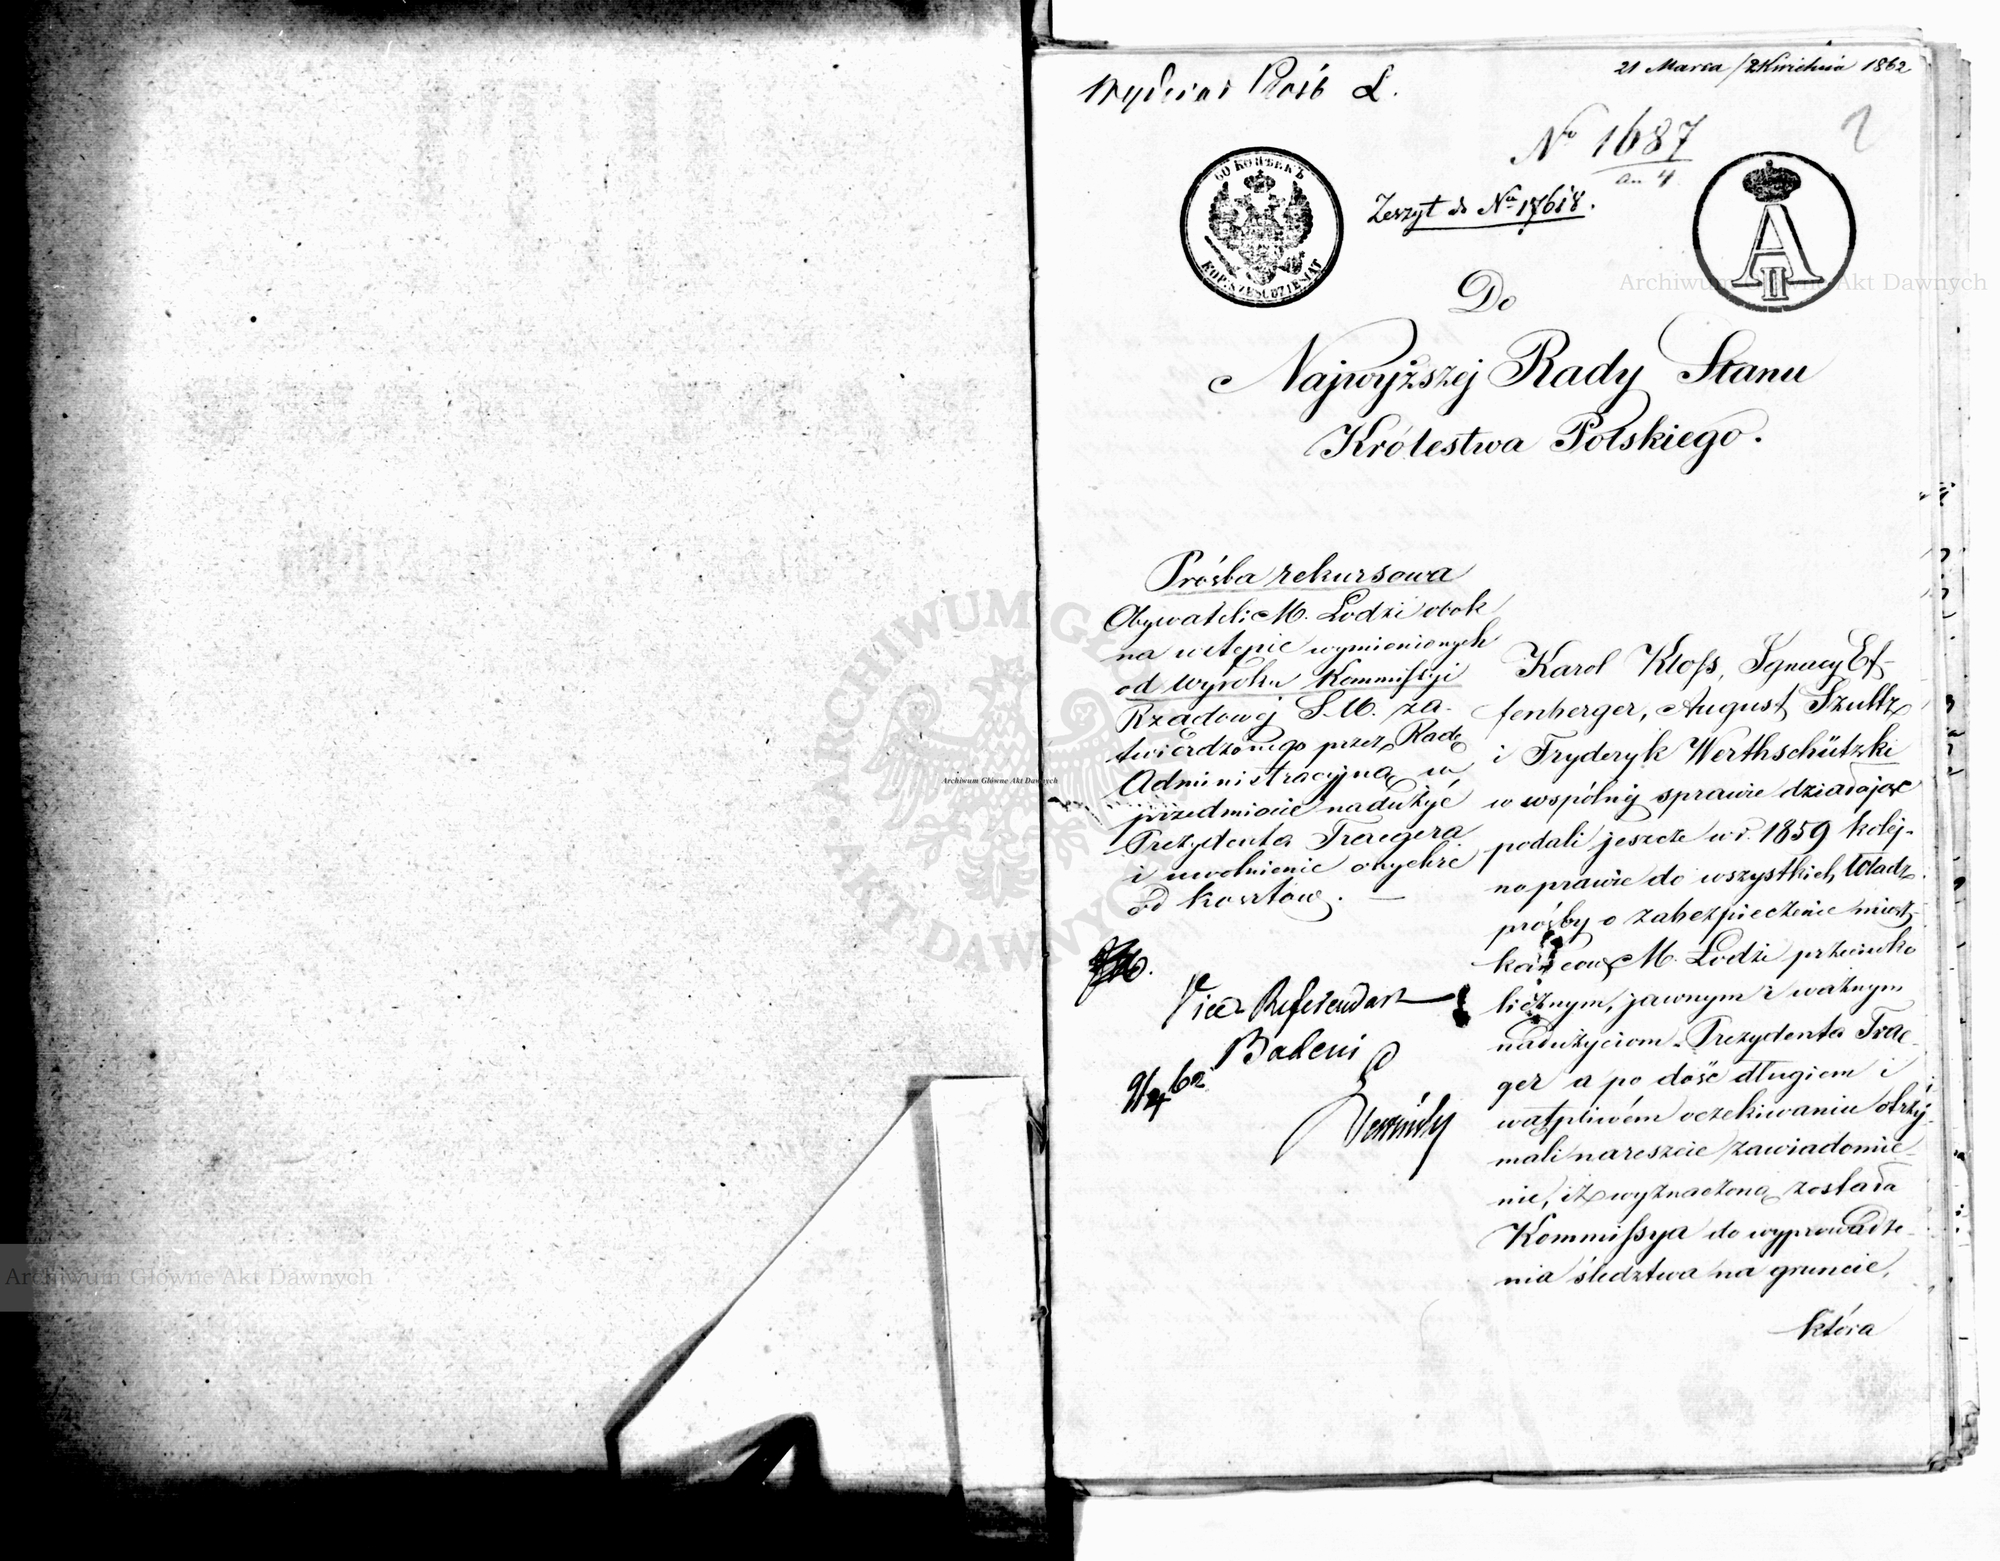 21 Marca / 2 Kwietnia 1862
Wydział Próśb L.
No 1687
an. 4
2
60 КОПѢЕКЪ
KOP. SZEŚĆDZIESIĄT
Zeszyt do No 17618.
A II
Do
Najwyższej Rady Stanu
Królestwa Polskiego.
Prośba rekursowa
Obywateli M. Łodzi obok
na wstępie wymienionych
od Wyroku Kommissyi
Rządowej S. W. za-
twierdzonego przez Radę
Administracyjną w
przedmiocie nadużyć
Prezydenta Traegera
i uwolnienie onychże
od kosztów. —
Vice Referendarz
Badeni
9/4 62
Karol Kloss, Ignacy Ef-
fenberger, August Szultz
i Fryderyk Werthschützki
w wspólnej sprawie działając
podali jeszcze w r. 1859 kolej-
no prawie do wszystkich Władz
prośby o zabezpieczenie miesz-
kańców M. Łodzi przeciwko
licznym, jawnym i ważnym
nadużyciom Prezydenta Trae-
ger a po dość długiem i
wątpliwém oczekiwaniu otrzy-
mali nareszcie zawiadomie-
nie, iż wyznaczoną została
Kommissya do wyprowadze-
nia śledztwa na gruncie,
która
Archiwum Główne Akt Dawnych
Archiwum Główne Akt Dawnych
Archiwum Główne Akt Dawnych
ARCHIWUM GŁÓWNE AKT DAWNYCH